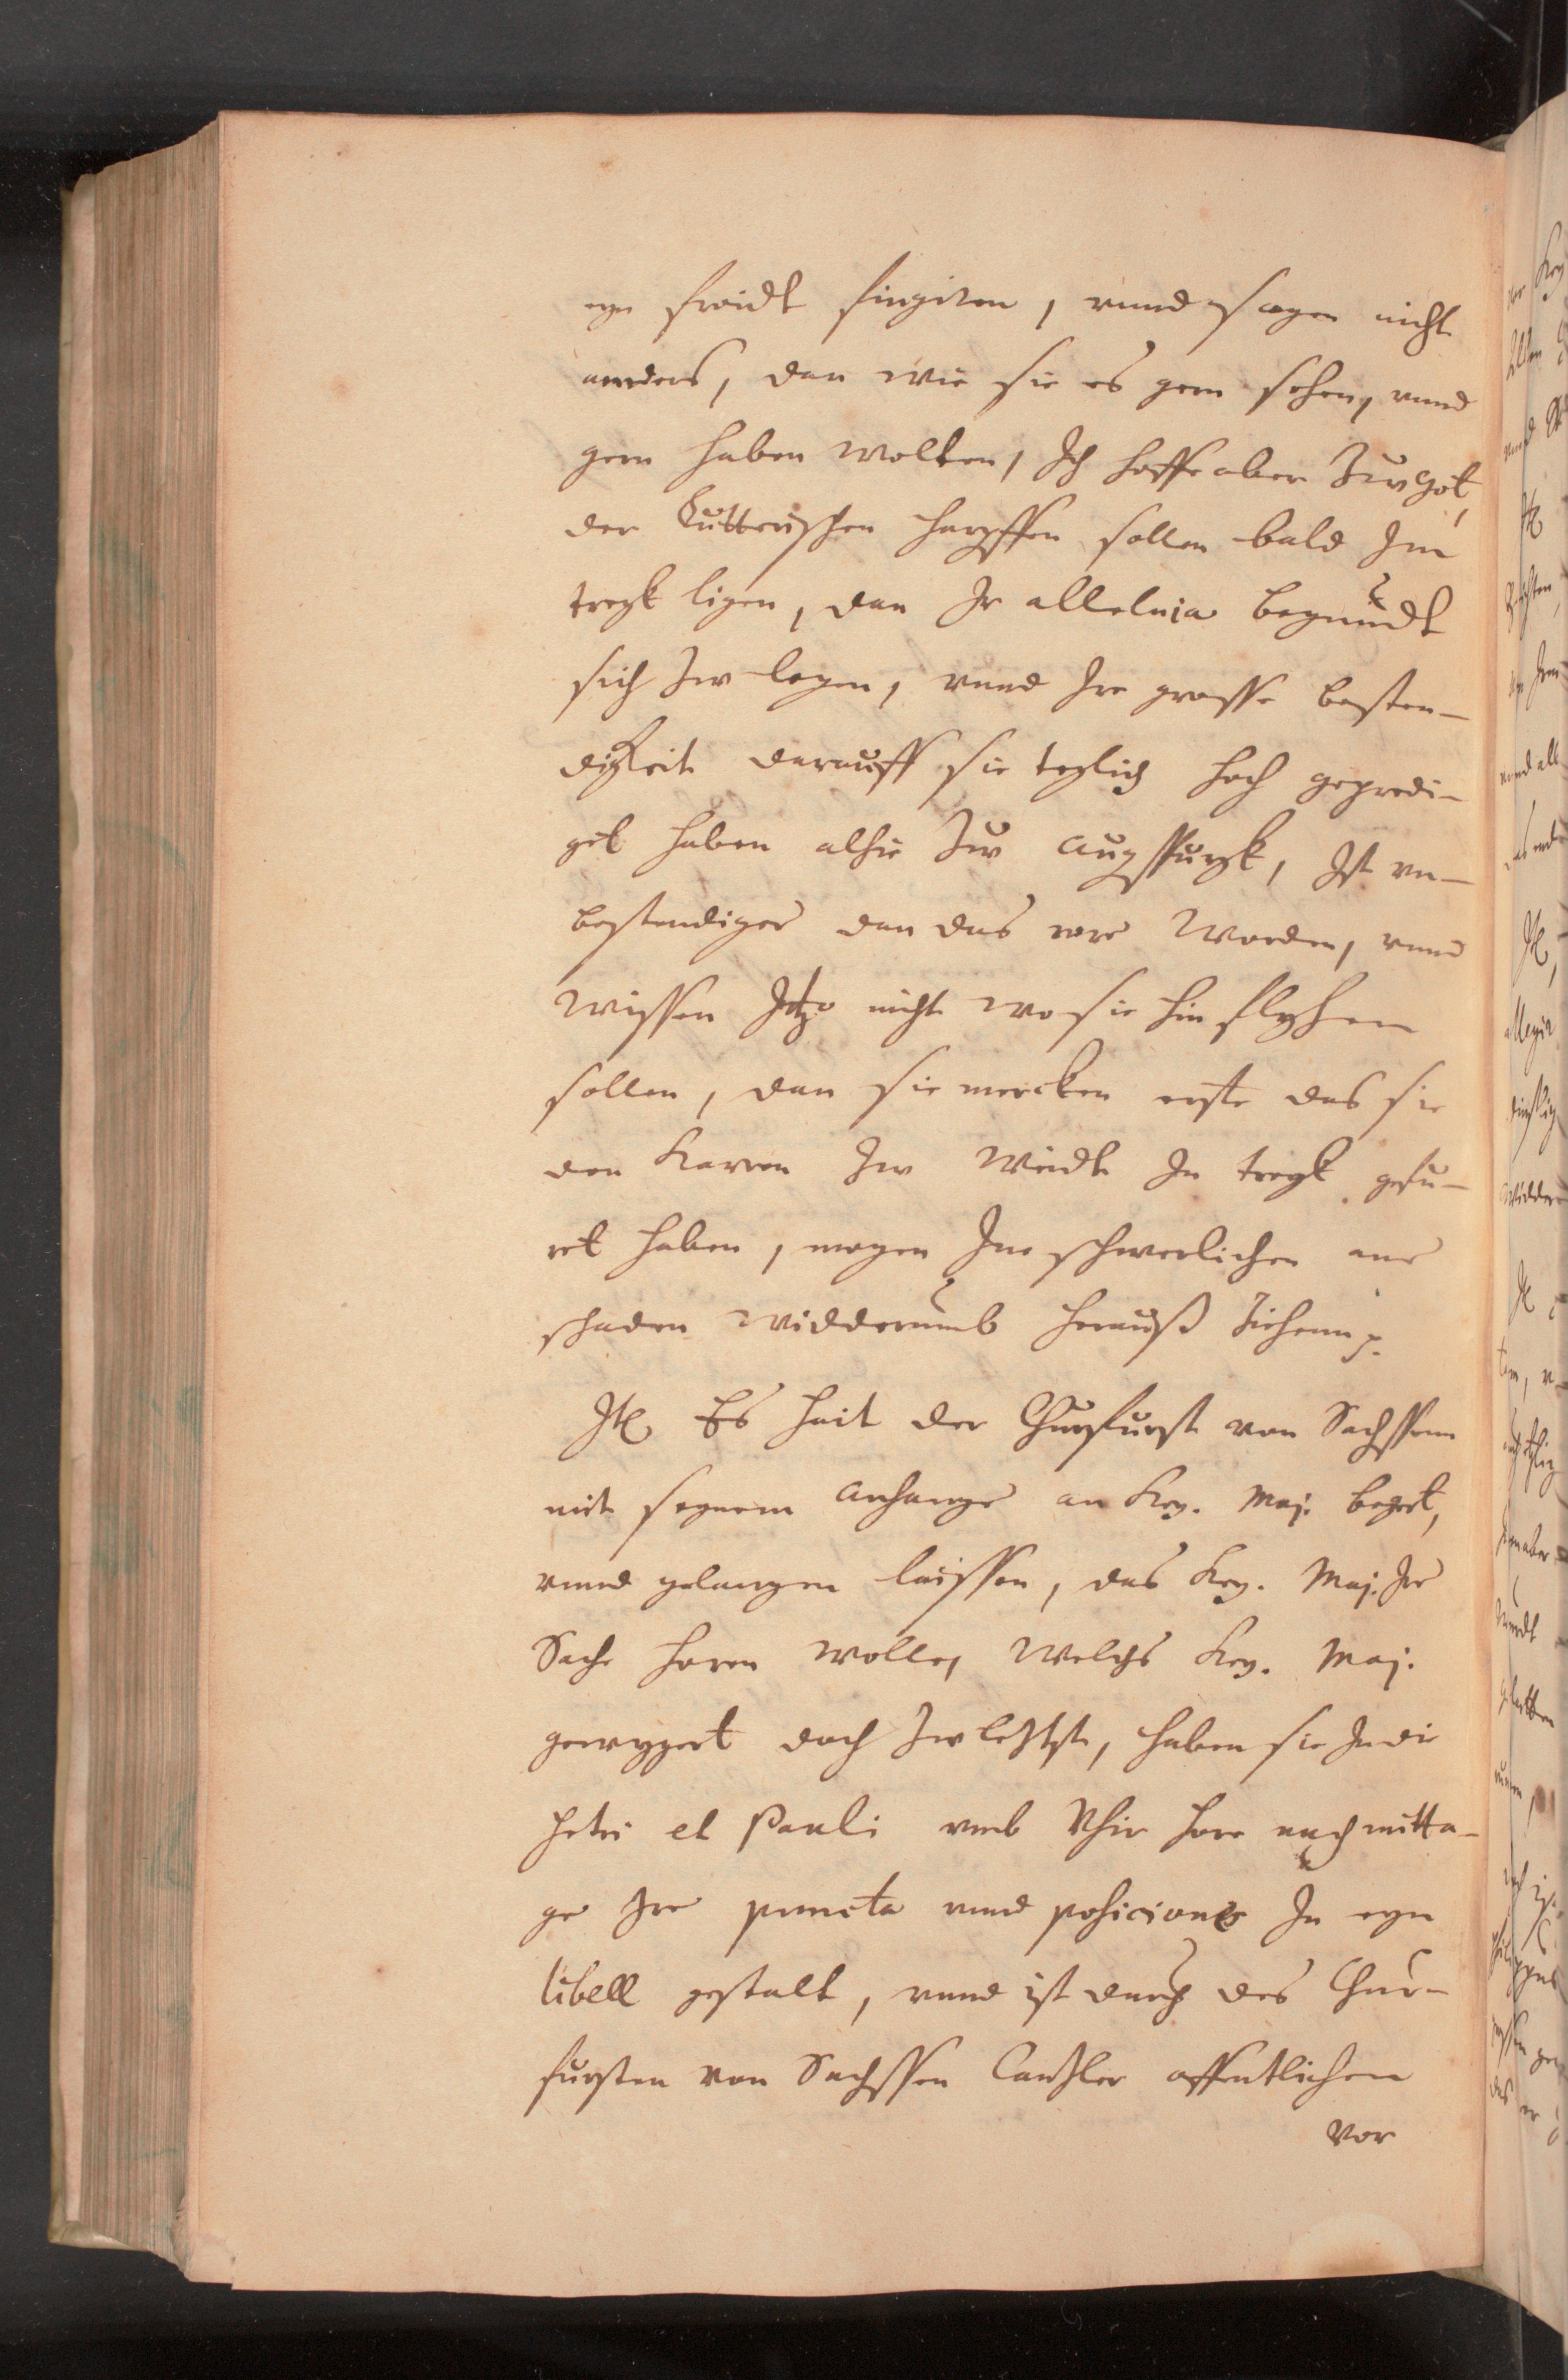 eyn freidt fingiren, vnnd sagen nicht
annders, dan wie sie es gern sehen, vnnd
gern haben wolten, Ich hoffe aber Zuw Got,
der Lutterischen harpffen sollen bald Im
dregk ligen, dan Ir alleluia begundt
sich Zw legen, vnnd Ire grosse besten-
digkeit darauff sie teglich hoch gepredi-
get haben alhie Zuw Augspurgk, Ist vn-
bestendiger dan das rore worden, vnnd
wissen Itzo nicht wo sie hin flyhen
sollen, dan sie mercken erste das sie
den Karren Zw weidt In dregk gefu-
ret haben, mogen Ine schwerlichen ane
schaden widderumb herauß Ziehenn p.
Itē Es hait der Churfurst von Sachssenn
mit seynem anhange an Key. Maj. begert,
vnnd gelangen laissen, das Key. Maj. Ire
Sache horen wolle, welchs Key. Maj.
gewygert doch Zw letzst, haben sie In die
Petri et Pauli vmb Vhir hore nach mitta-
ge Ire puncta vnnd posiciones In eyn
libell gestalt, vnnd ist durch des Chur-
fursten von Sachssen Cantzler offentlichen
vor